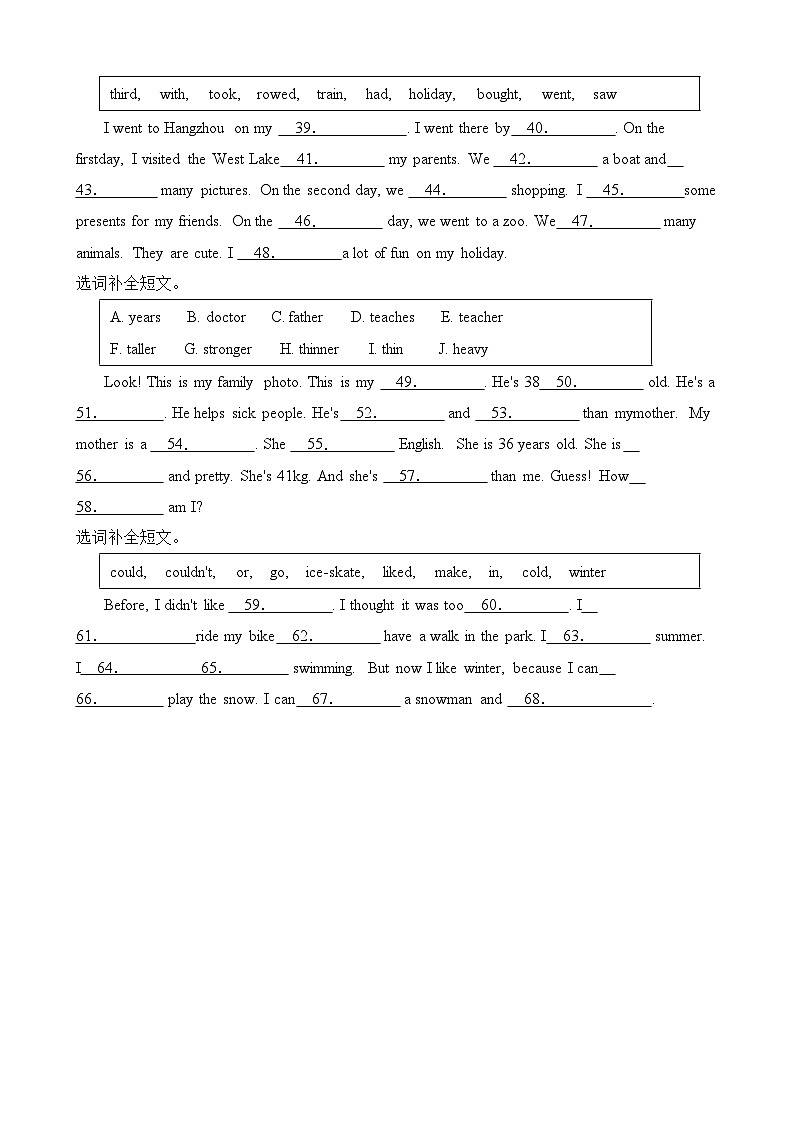 third, with, took, rowed, train, had, holiday, bought, went, saw
I went to Hangzhou on my 39. . I went there by 40. . On the
firstday, I visited the West Lake 41. my parents. We 42. a boat and
43. many pictures. On the second day, we 44. shopping. I 45. some
presents for my friends. On the 46. day, we went to a zoo. We 47. many
animals. They are cute. I 48. a lot of fun on my holiday.
选词补全短文。
A. years B. doctor C. father D. teaches E. teacher
F. taller G. stronger H. thinner I. thin J. heavy
Look! This is my family photo. This is my 49. . He's 38 50. old. He's a
51. . He helps sick people. He's 52. and 53. than mymother. My
mother is a 54. . She 55. English. She is 36 years old. She is
56. and pretty. She's 41kg. And she's 57. than me. Guess! How
58. am I?
选词补全短文。
could, couldn't, or, go, ice-skate, liked, make, in, cold, winter
Before, I didn't like 59. . I thought it was too 60. . I
61. ride my bike 62. have a walk in the park. I 63. summer.
I 64. 65. swimming. But now I like winter, because I can
66. play the snow. I can 67. a snowman and 68. .